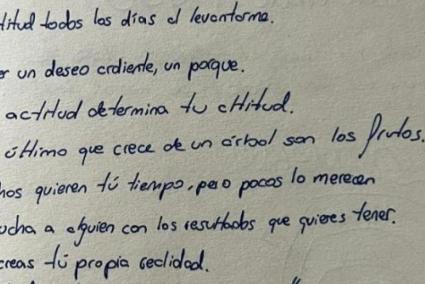 titud todos los días al levantarme.
er un deseo ardiente, un porque.
actitud determina tu altitud.
último que crece de un árbol son los frutos.
hos quieren tú tiempo, pero pocos lo merecen
ucha a alguien con los resultados que quieres tener.
creas tú propia realidad.